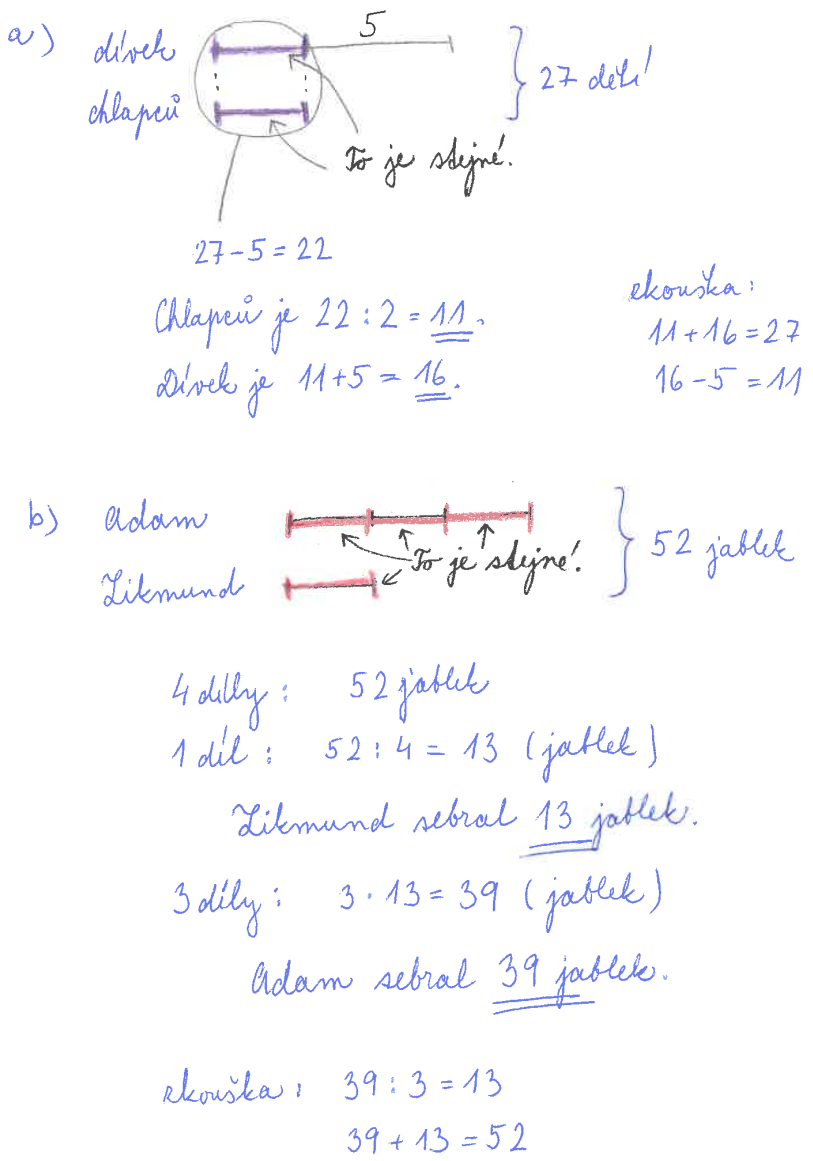 a) dívek 5
chlapců } 27 dětí
To je stejné!
27 - 5 = 22
Chlapců je 22 : 2 = 11.
Dívek je 11 + 5 = 16.
zkouška:
11 + 16 = 27
16 - 5 = 11
b) Adam
Zikmund } 52 jablek
To je stejné!
4 díly: 52 jablek
1 díl: 52 : 4 = 13 (jablek)
Zikmund sebral 13 jablek.
3 díly: 3 · 13 = 39 (jablek)
Adam sebral 39 jablek.
zkouška: 39 : 3 = 13
39 + 13 = 52